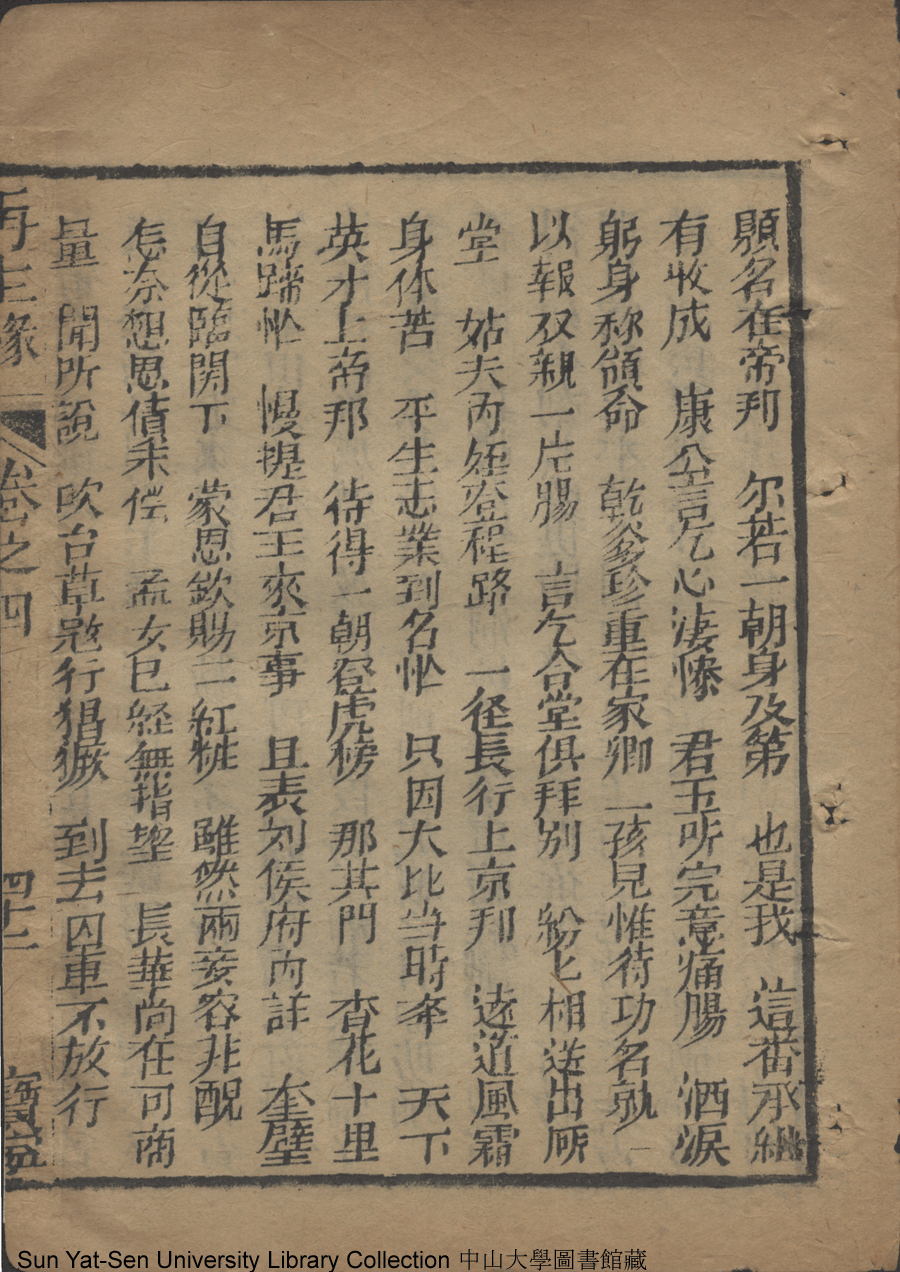 顯名在帝邦　尔若一朝身及第　也是我　這番承継
有收成　康公言乞心淒慘　君玉听完意痛腸　洒淚
躬身称領命　乾爹珍重在家卿　一孩兒惟待功名就　一
以報双親一片腸　言乞合堂俱拜別　紛匕相送出厥
堂　姑夫內姪登程路　一径長行上京邦　逺道風霜
身体苦　平生志業到名忙　只因大比当時年　天下
英才上帝邦　待得一朝登虎榜　那其門　杏花十里
馬蹄忙　慢提君王來京事　且表刘侯府內詳　奎璧
自從臨閞下　蒙恩欽賜二紅粧　雖然兩妾容非醜
怎奈想思債未偿　孟女已経無指望　長華尚在可商
量　聞所說　吹台草㓂行猖獗　到去囚車不放行
再生緣　卷之四　四十二
Sun Yat-Sen University Library Collection 中山大學圖書館藏